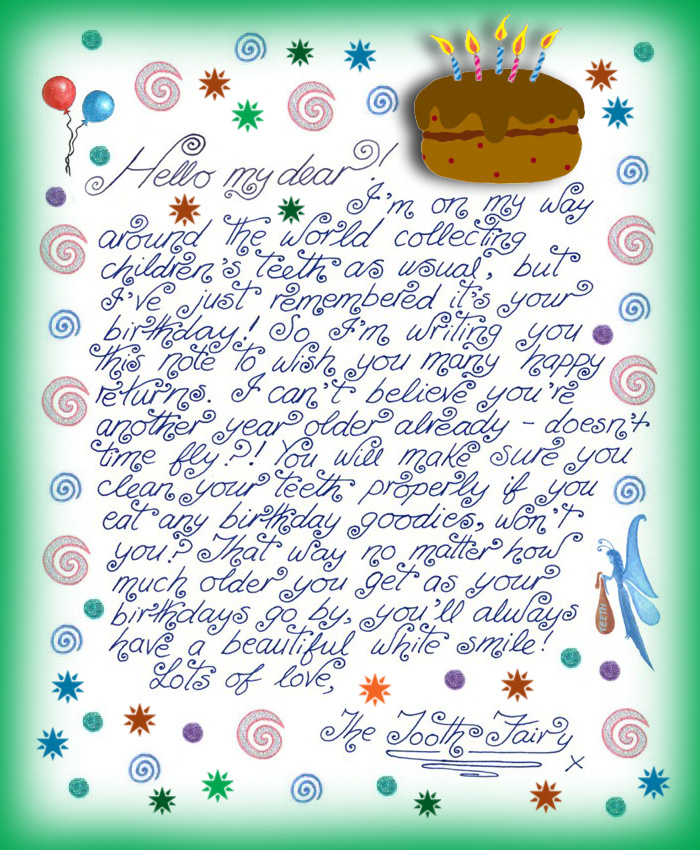 Hello my dear!
I'm on my way
around the world collecting
children's teeth as usual, but
I've just remembered it's your
birthday! So I'm writing you
this note to wish you many happy
returns. I can't believe you're
another year older already - doesn't
time fly?! You will make sure you
clean your teeth properly if you
eat any birthday goodies, won't
you? That way no matter how
much older you get as your
birthdays go by, you'll always
have a beautiful white smile!
Lots of love,
The Tooth Fairy
x
TEETH